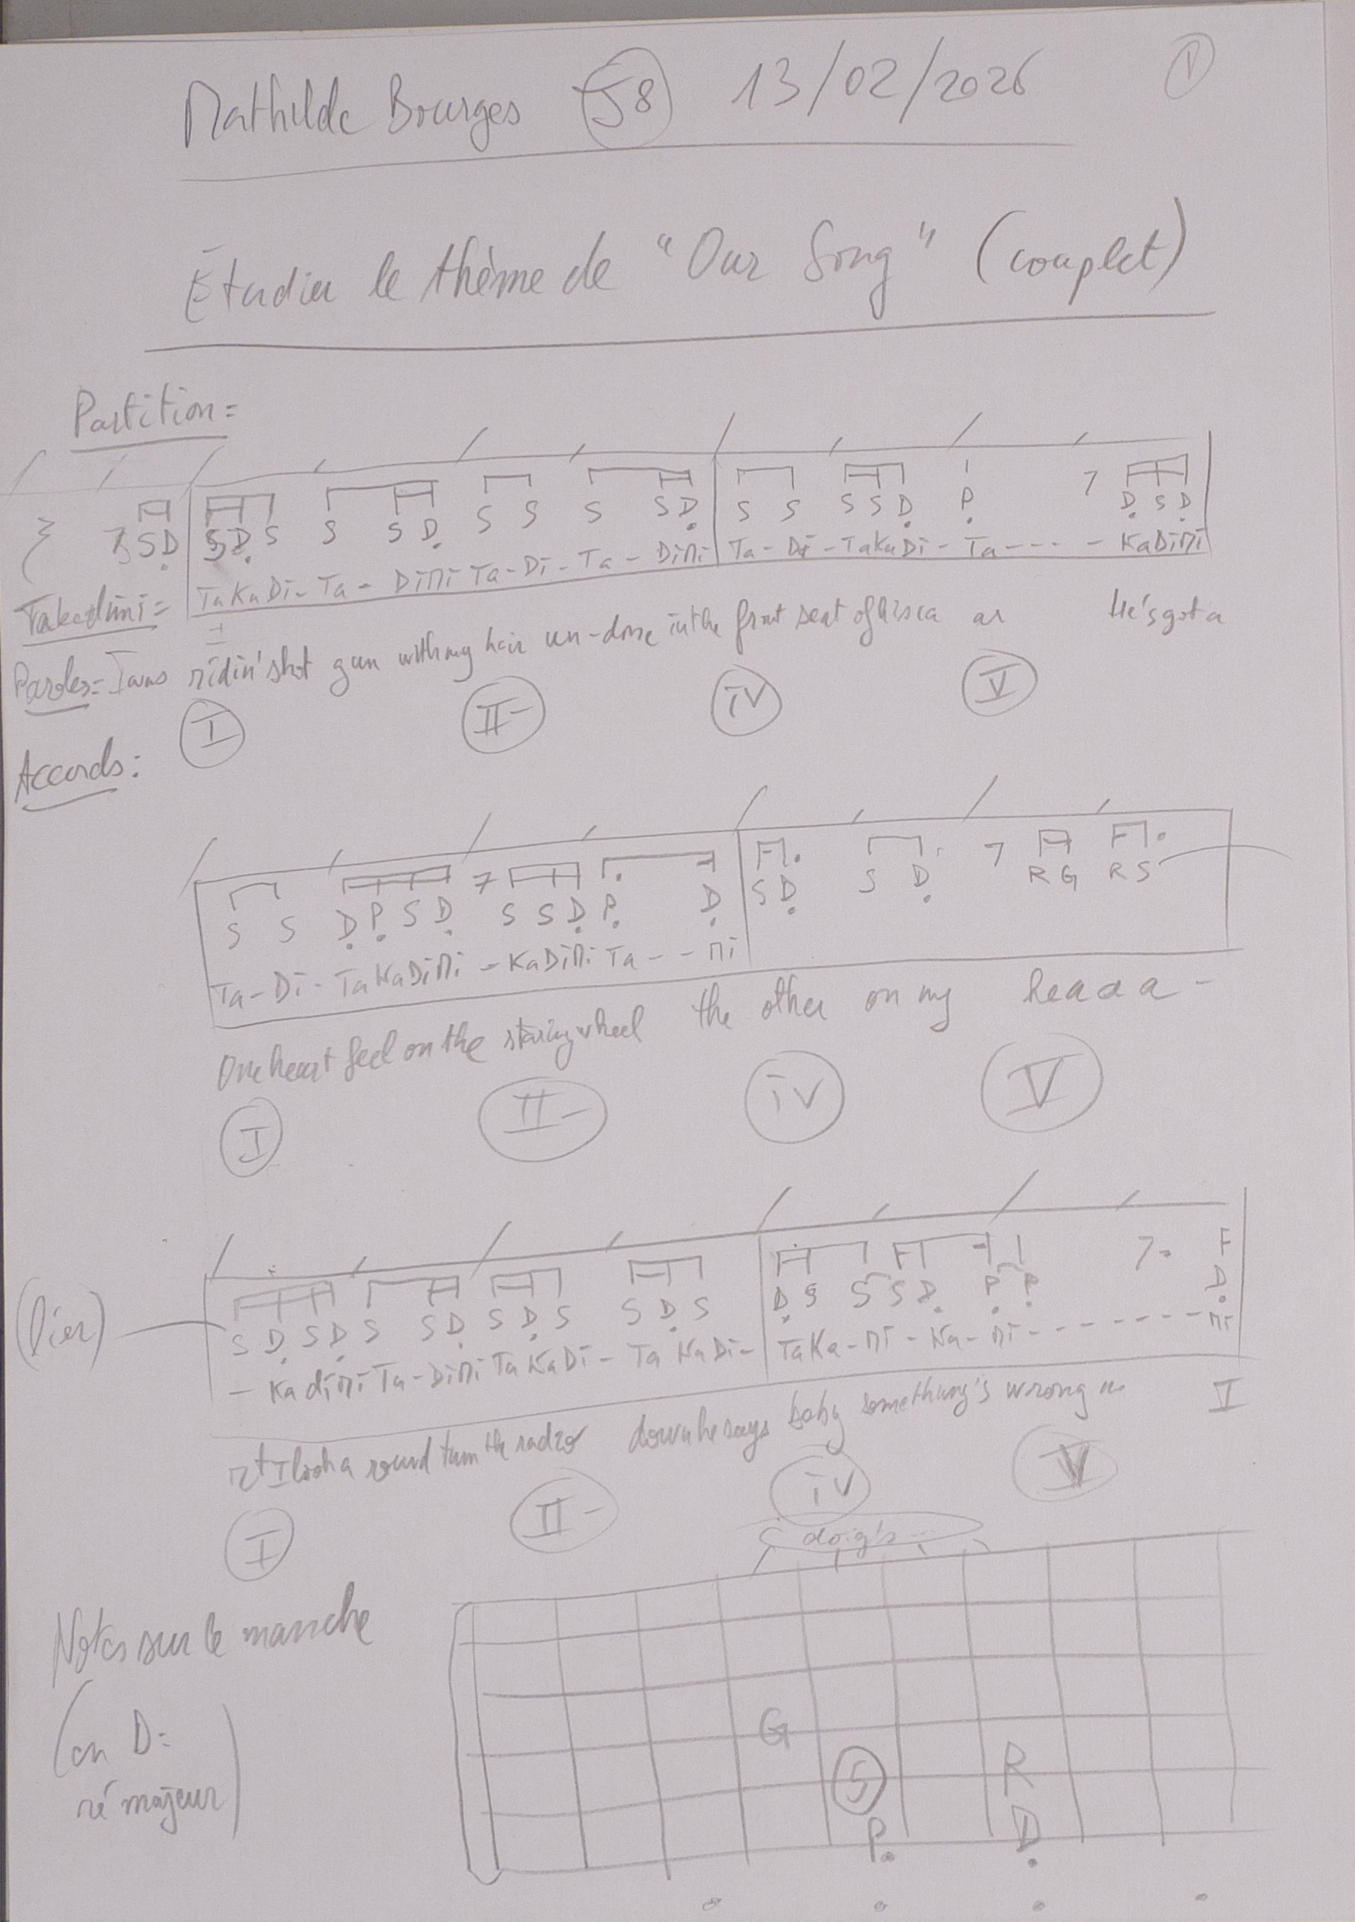 Mathilde Bourges S8 13/02/2026 1
Étudier le thème de "Our Song" (couplet)
Partition =
7 S D S D S S S D S S S S D S S S S D P 7 D S D
Takadimi = TaKaDi - Ta - DiMi Ta - Di - Ta - DiMi Ta - Di - TaKaDi - Ta - - - - - KaDiMi
Paroles = I was ridin' shot gun with my hair un-done in the front seat of his ca ar He's got a
Accords : I II- IV V
S S D P S D 7 S S D P. D S D. S D. 7 R G R S
Ta - Di - TaKaDiMi - KaDiMi Ta - - Mi
One heart feel on the steering wheel the other on my heada a -
I II- IV V
(lier) S D S D S S D S D S S D S D S S S D P P 7. D
- KadiMi Ta - DiMi TaKaDi - TaKaDi - TaKa - Mi - Ka - Mi - - - - - - - Mi
rt I look a round turn the radio down he says baby something's wrong I
I II- IV V
doigts
Notes sur le manche
(en D =
ré majeur)
G
S R
P. D